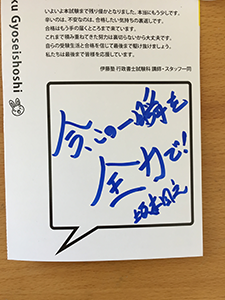 ku Gyoseishoshi
いよいよ本試験まで残り僅かとなりました。本当にもう少しです。
辛いのは、不安なのは、合格したい気持ちの裏返しです。
合格はもう手の届くところまで来ています。
これまで積み重ねてきた努力は裏切らないから大丈夫です。
自らの受験生活と合格を信じて最後まで駆け抜けましょう。
私たちは最後まで皆様を応援しています。
伊藤塾 行政書士試験科 講師・スタッフ一同
今、この一瞬を
全力で!